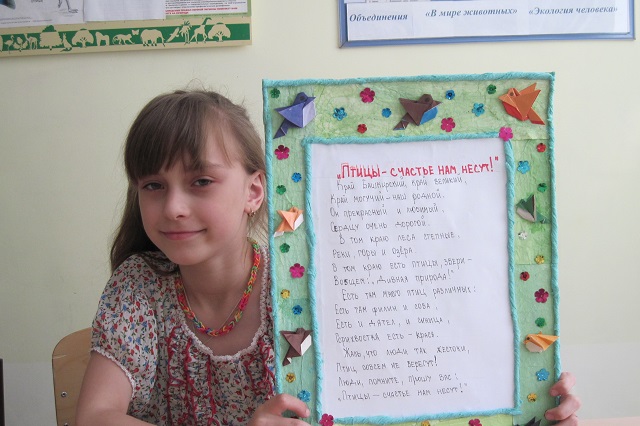 Объединения «В мире животных» «Экология человека»
„Птицы - счастье нам несут!"
Край Башкирский, край великий,
Край могучий - наш родной.
Он прекрасный и любимый,
Сердцу очень дорогой.
В том краю леса степные,
Реки, горы и озёра.
В том краю есть птицы, звери -
В общем: „Дивная природа!"
Есть там много птиц различных:
Есть там филин и сова,
Есть и дятел, и синица,
Горихвостка есть - краса.
Жаль, что люди так жестоки,
Птиц совсем не берегут!
Люди, помните, прошу вас:
„Птицы - счастье нам несут!"